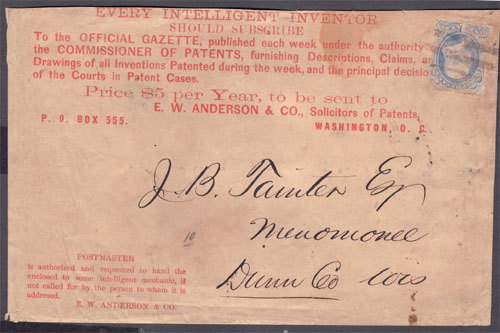 EVERY INTELLIGENT INVENTOR
SHOULD SUBSCRIBE
To the OFFICIAL GAZETTE, published each week under the authority
the COMMISSIONER OF PATENTS, furnishing Descriptions, Claims, an
Drawings of all Inventions Patented during the week, and the principal decisio
of the Courts in Patent Cases.
Price $5 per Year, to be sent to
E. W. ANDERSON & CO., Solicitors of Patents,
P. O. BOX 555.
WASHINGTON, D. C.
J. B. Tainter Esq
Menomonee
Dunn Co Wis
10
POSTMASTER
is authorized and requested to hand the
enclosed to some intelligent mechanic, if
not called for by the person to whom it is
addresed.
E. W. ANDERSON & CO.